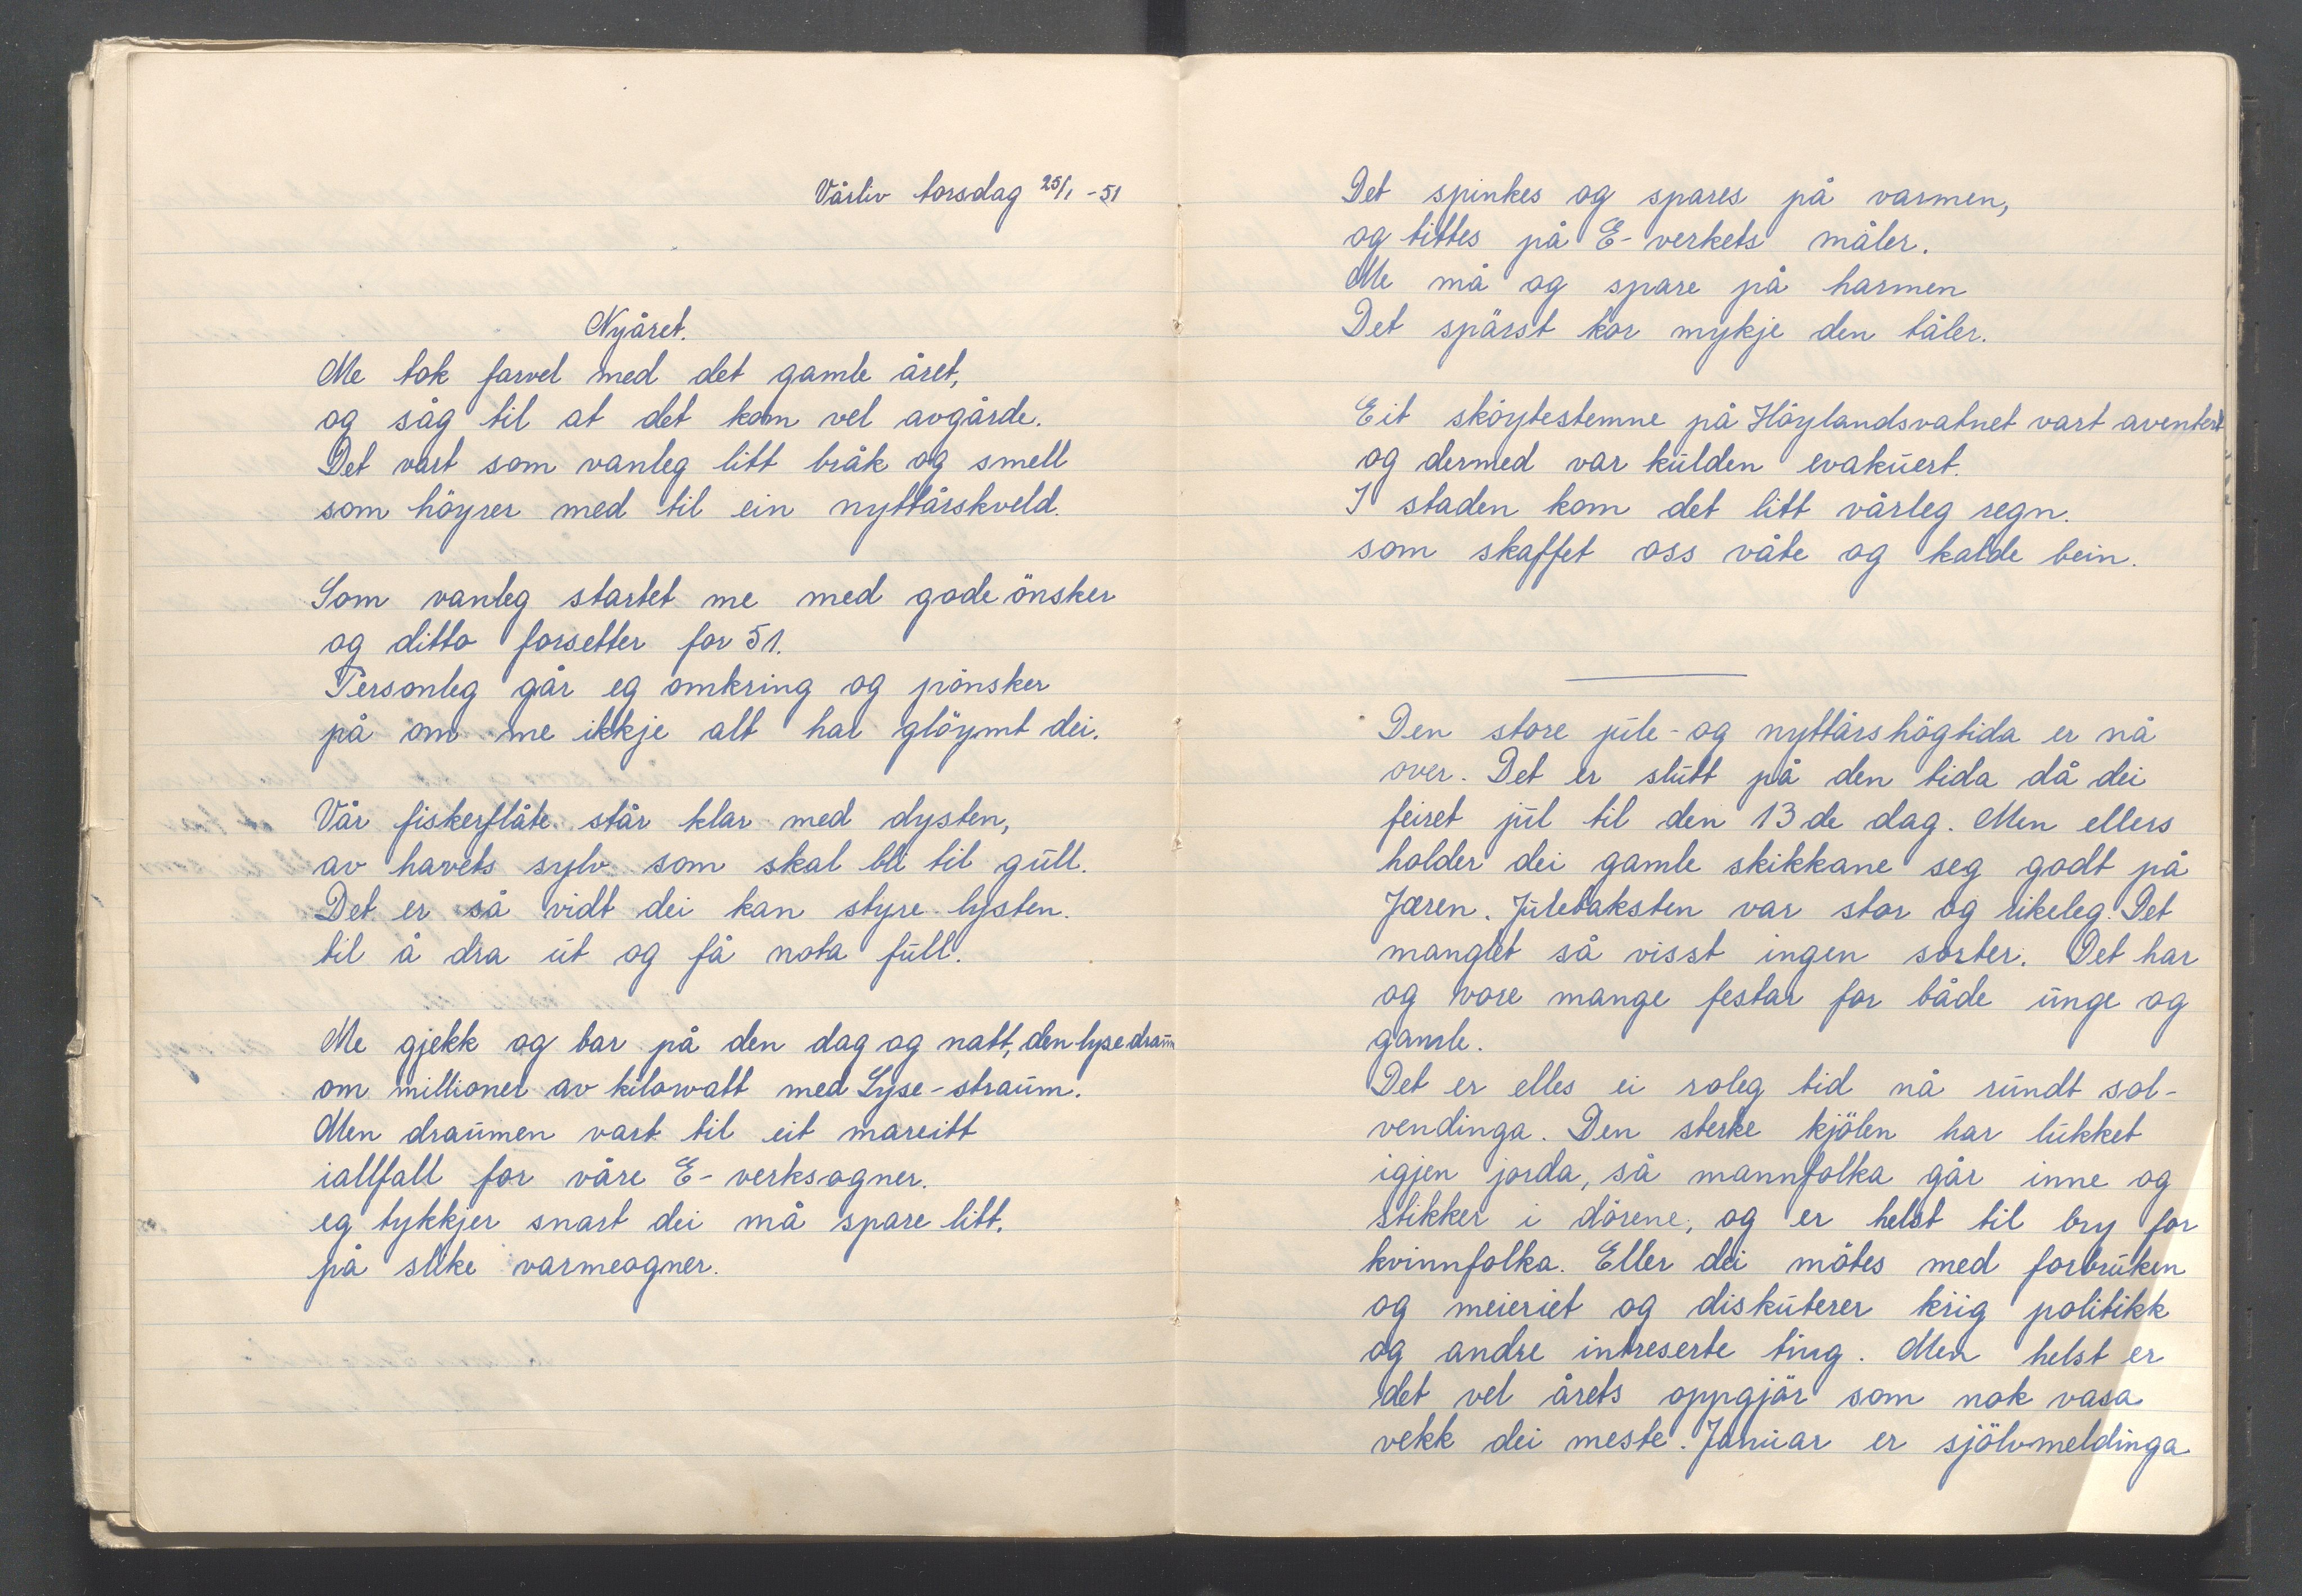 Vårliv torsdag 25/1 -51
Nyåret.
Me tok farvel med det gamle året,
og såg til at det kom vel avgårde.
Det vart som vanleg litt bråk og smell
som höyrer med til ein nyttårskveld.
Som vanleg startet me med gode önsker
og ditto forsetter for 51.
Personleg går eg omkring og pönsker
på om me ikkje alt har glöymt dei.
Vår fiskerflåte står klar med dysten,
av havets sylv som skal bli til gull.
Det er så vidt dei kan styre lysten.
til å dra ut og få nota full.
Me gjekk og bar på den dag og natt, den lyse draum
om millioner av kilowatt med Lyse-straum.
Men draumen vart til eit mareitt
iallfall for våre E-verksogner.
eg tykkjer snart dei må spare litt.
på slike varmeogner.
Det spinkes og spares på varmen,
og tittes på E-verkets måler.
Me må og spare på harmen
Det spärst kor mykje den tåler.
Eit sköytestemne på Höylandsvatnet vart aventert
og dermed var kulden evakuert.
I staden kom det litt vårleg regn.
som skaffet oss våte og kalde bein.
Den store jule- og nyttårshögtida er nå
over. Det er slutt på den tida då dei
feiret jul til den 13de dag. Men ellers
holder dei gamle skikkane seg godt på
Jæren. Julebaksten var stor og rikeleg. Det
manglet så visst ingen sorter. Det har
og vore mange festar for både unge og
gamle.
Det er elles ei roleg tid nå rundt sol-
vendinga. Den sterke kjölen har lukket
igjen jorda, så mannfolka går inne og
stikker i dörene, og er helst til bry for
kvinnfolka. Eller dei mötes med forbruken
og meieriet og diskuterer krig politikk
og andre intreserte ting. Men helst er
det vel årets oppgjör som nok vasa
vekk dei meste. Januar er sjölvmeldinga